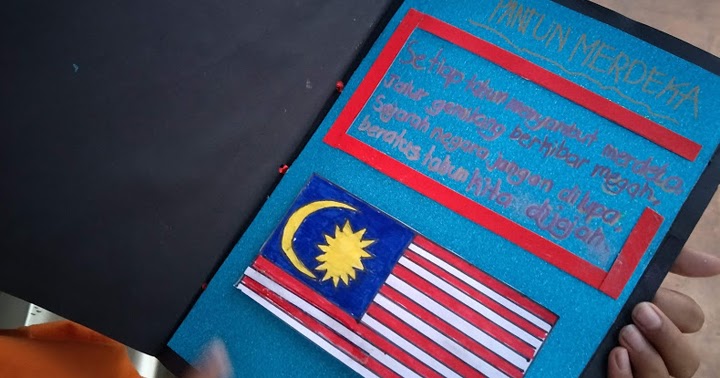 PANTUN MERDEKA
Setiap tahun menyambut merdeka,
Jalur gemilang berkibar megah,
Sejarah negara jangan dilupa,
beratus tahun kita dijajah.